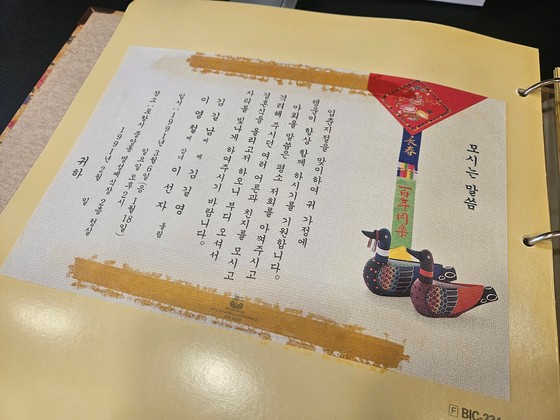 모시는 말씀
長春
百年同樂
입춘지절을 맞이하여 귀 가정에
행운이 항상 함께 하시기를 기원합니다.
아뢰올 말씀은 평소 저희를 아껴주시고
격려해 주시던 여러 어른과 친지를 모시고
결혼식을 올리고저 하오니 부디 오셔서
자리를 빛나게 하여주시기 바랍니다.
김길남 에 제 김길영
이영철 삼녀 이선자 올림
일시:1991년 3월 6일(음 1월 18일)
일요일 오후 2시
장소:포항시 중앙동 명성예식장 2층
1991년 2월 일
귀하
F BIC-234